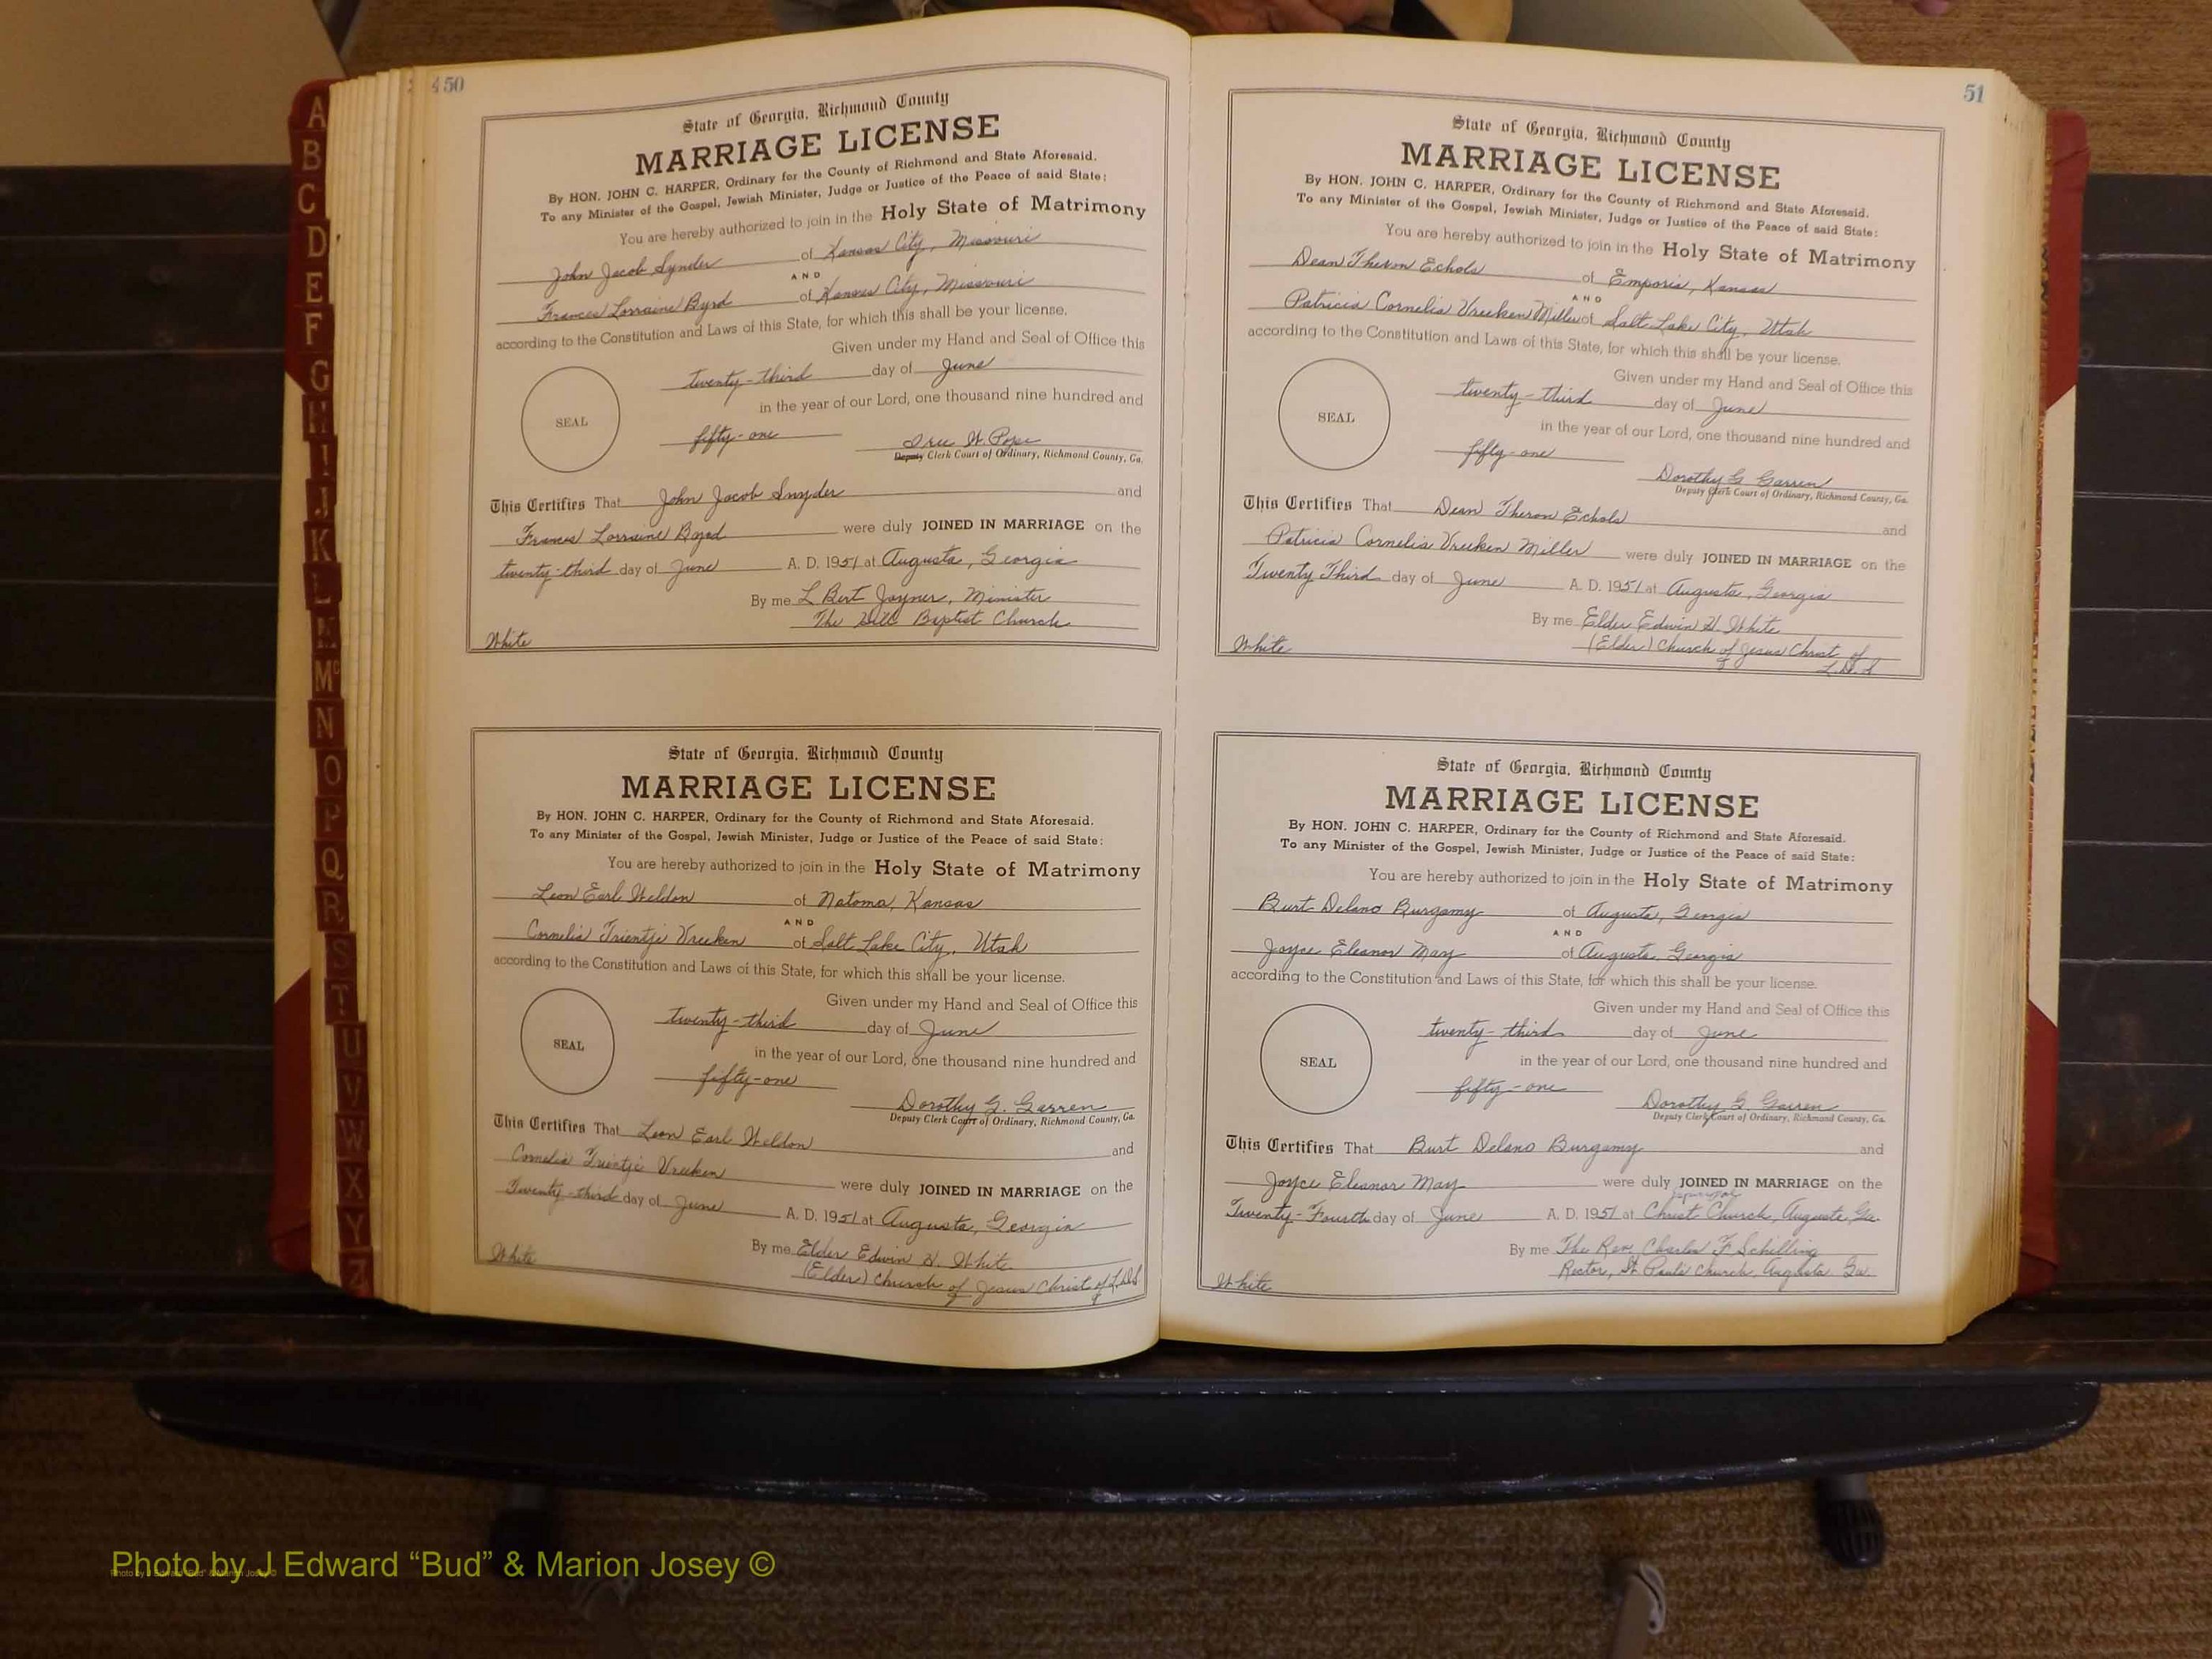 450
State of Georgia, Richmond County
MARRIAGE LICENSE
By HON. JOHN C. HARPER, Ordinary for the County of Richmond and State Aforesaid.
To any Minister of the Gospel, Jewish Minister, Judge or Justice of the Peace of said State:
You are hereby authorized to join in the Holy State of Matrimony
John Jacob Synder of Kansas City, Missouri
AND
Frances Lorraine Byrd of Kansas City, Missouri
according to the Constitution and Laws of this State, for which this shall be your license.
Given under my Hand and Seal of Office this
twenty-third day of June
in the year of our Lord, one thousand nine hundred and
SEAL
fifty-one W. Pope
Deputy Clerk Court of Ordinary, Richmond County, Ga.
This Certifies That John Jacob Snyder and
Frances Lorraine Byrd were duly JOINED IN MARRIAGE on the
twenty-third day of June A. D. 1951 at Augusta, Georgia
By me L Bert Joyner, Minister
The Hill Baptist Church
White
State of Georgia, Richmond County
MARRIAGE LICENSE
By HON. JOHN C. HARPER, Ordinary for the County of Richmond and State Aforesaid.
To any Minister of the Gospel, Jewish Minister, Judge or Justice of the Peace of said State:
You are hereby authorized to join in the Holy State of Matrimony
Leon Earl Weldon of Natoma, Kansas
AND
Cornelia Trientje Vreeken of Salt Lake City, Utah
according to the Constitution and Laws of this State, for which this shall be your license.
Given under my Hand and Seal of Office this
twenty-third day of June
in the year of our Lord, one thousand nine hundred and
SEAL
fifty-one Dorothy G. Garren
Deputy Clerk Court of Ordinary, Richmond County, Ga.
This Certifies That Leon Earl Weldon and
Cornelia Trientje Vreeken were duly JOINED IN MARRIAGE on the
Twenty-third day of June A. D. 1951 at Augusta, Georgia
By me Elder Edwin H. White
(Elder) Church of Jesus Christ of L.D.S
White
51
State of Georgia, Richmond County
MARRIAGE LICENSE
By HON. JOHN C. HARPER, Ordinary for the County of Richmond and State Aforesaid.
To any Minister of the Gospel, Jewish Minister, Judge or Justice of the Peace of said State:
You are hereby authorized to join in the Holy State of Matrimony
Dean Theron Echols of Emporia, Kansas
AND
Patricia Cornelia Vreeken Miller of Salt Lake City, Utah
according to the Constitution and Laws of this State, for which this shall be your license.
Given under my Hand and Seal of Office this
twenty-third day of June
in the year of our Lord, one thousand nine hundred and
SEAL
fifty-one Dorothy G Garren
Deputy Clerk Court of Ordinary, Richmond County, Ga.
This Certifies That Dean Theron Echols and
Patricia Cornelia Vreeken Miller were duly JOINED IN MARRIAGE on the
Twenty Third day of June A. D. 1951 at Augusta, Georgia
By me Elder Edwin H. White
(Elder) Church of Jesus Christ of
L.D.S
White
State of Georgia, Richmond County
MARRIAGE LICENSE
By HON. JOHN C. HARPER, Ordinary for the County of Richmond and State Aforesaid.
To any Minister of the Gospel, Jewish Minister, Judge or Justice of the Peace of said State:
You are hereby authorized to join in the Holy State of Matrimony
Burt Delano Burgamy of Augusta, Georgia
AND
Joyce Eleanor May of Augusta, Georgia
according to the Constitution and Laws of this State, for which this shall be your license.
Given under my Hand and Seal of Office this
twenty-third day of June
in the year of our Lord, one thousand nine hundred and
SEAL
fifty-one Dorothy G. Garren
Deputy Clerk Court of Ordinary, Richmond County, Ga.
This Certifies That Burt Delano Burgamy and
Joyce Eleanor May were duly JOINED IN MARRIAGE on the
Episcopal
Twenty-Fourth day of June A. D. 1951 at Christ Church, Augusta, Ga.
By me The Rev. Charles F Schilling
Rector, St Pauls Church, Augusta Ga.
White
A
B
C
D
E
F
G
H
I
J
K
L
M
Mc
N
O
P
Q
R
S
T
U
V
W
X
Y
Z
Photo by J Edward “Bud” & Marion Josey ©
Photo by J Edward “Bud” & Marion Josey ©